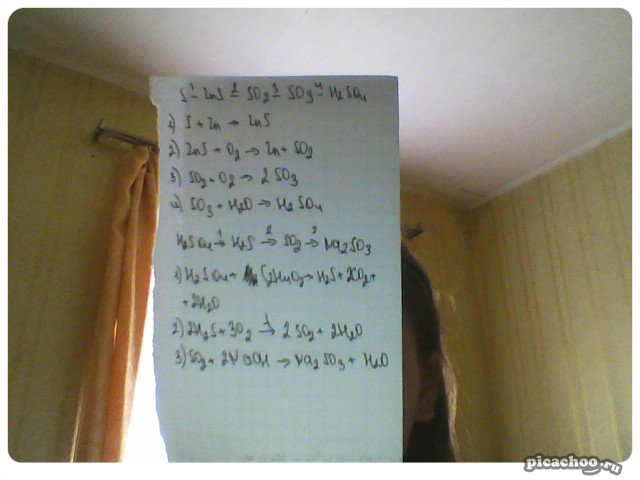 S ¹– ZnS ²= SO₂ ³= SO₃ ⁴– H₂SO₄
1) S + Zn → ZnS
2) ZnS + O₂ → Zn + SO₂
3) SO₂ + O₂ → 2 SO₃
4) SO₃ + H₂O → H₂SO₄
H₂SO₄ ¹→ H₂S ²→ SO₂ ³→ Na₂SO₃
1) H₂SO₄ + C₂H₄O₂ → H₂S + 2CO₂ +
+ 2H₂O
2) 2H₂S + 3O₂ → 2 SO₂ + 2H₂O
3) SO₂ + 2NaOH → Na₂SO₃ + H₂O
picachoo.ru